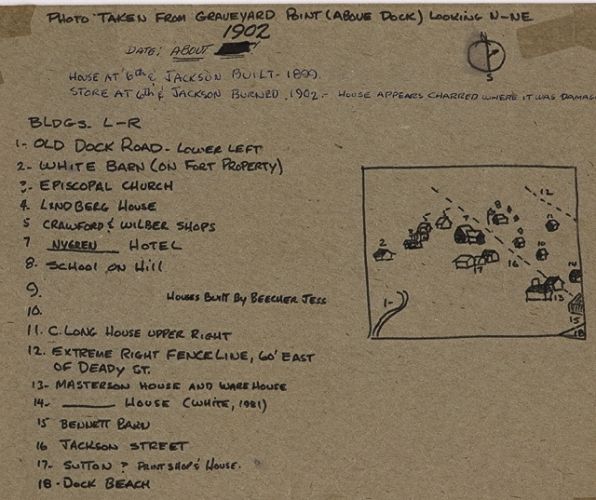 PHOTO TAKEN FROM GRAVEYARD POINT (ABOVE DOCK) LOOKING N-NE
1902
DATE; ABOUT
N
S
HOUSE AT 6th & JACKSON BUILT - 1899.
STORE AT 6th & JACKSON BURNED, 1902. - HOUSE APPEARS CHARRED WHERE IT WAS DAMAG
BLDGS. L-R
1- OLD DOCK ROAD - LOWER LEFT
2- WHITE BARN (ON FORT PROPERTY)
3- EPISCOPAL CHURCH
4. LINDBERG HOUSE
5 CRAWFORD & WILBER SHOPS
7 NYGREN HOTEL
8. SCHOOL ON HILL
9.
HOUSES BUILT BY BEECHER JESS
10.
11. C. LONG HOUSE UPPER RIGHT
12. EXTREME RIGHT FENCE LINE, 60' EAST
OF DEADY ST.
13- MASTERSON HOUSE AND WAREHOUSE
14- ______ HOUSE (WHITE, 1981)
15 BENNETT BARN
16 JACKSON STREET
17- SUTTON ? PRINT SHOP & HOUSE.
18 - DOCK BEACH
12
8
11
5
7
9
2
3
10
17
16
14
13
1-
15
18